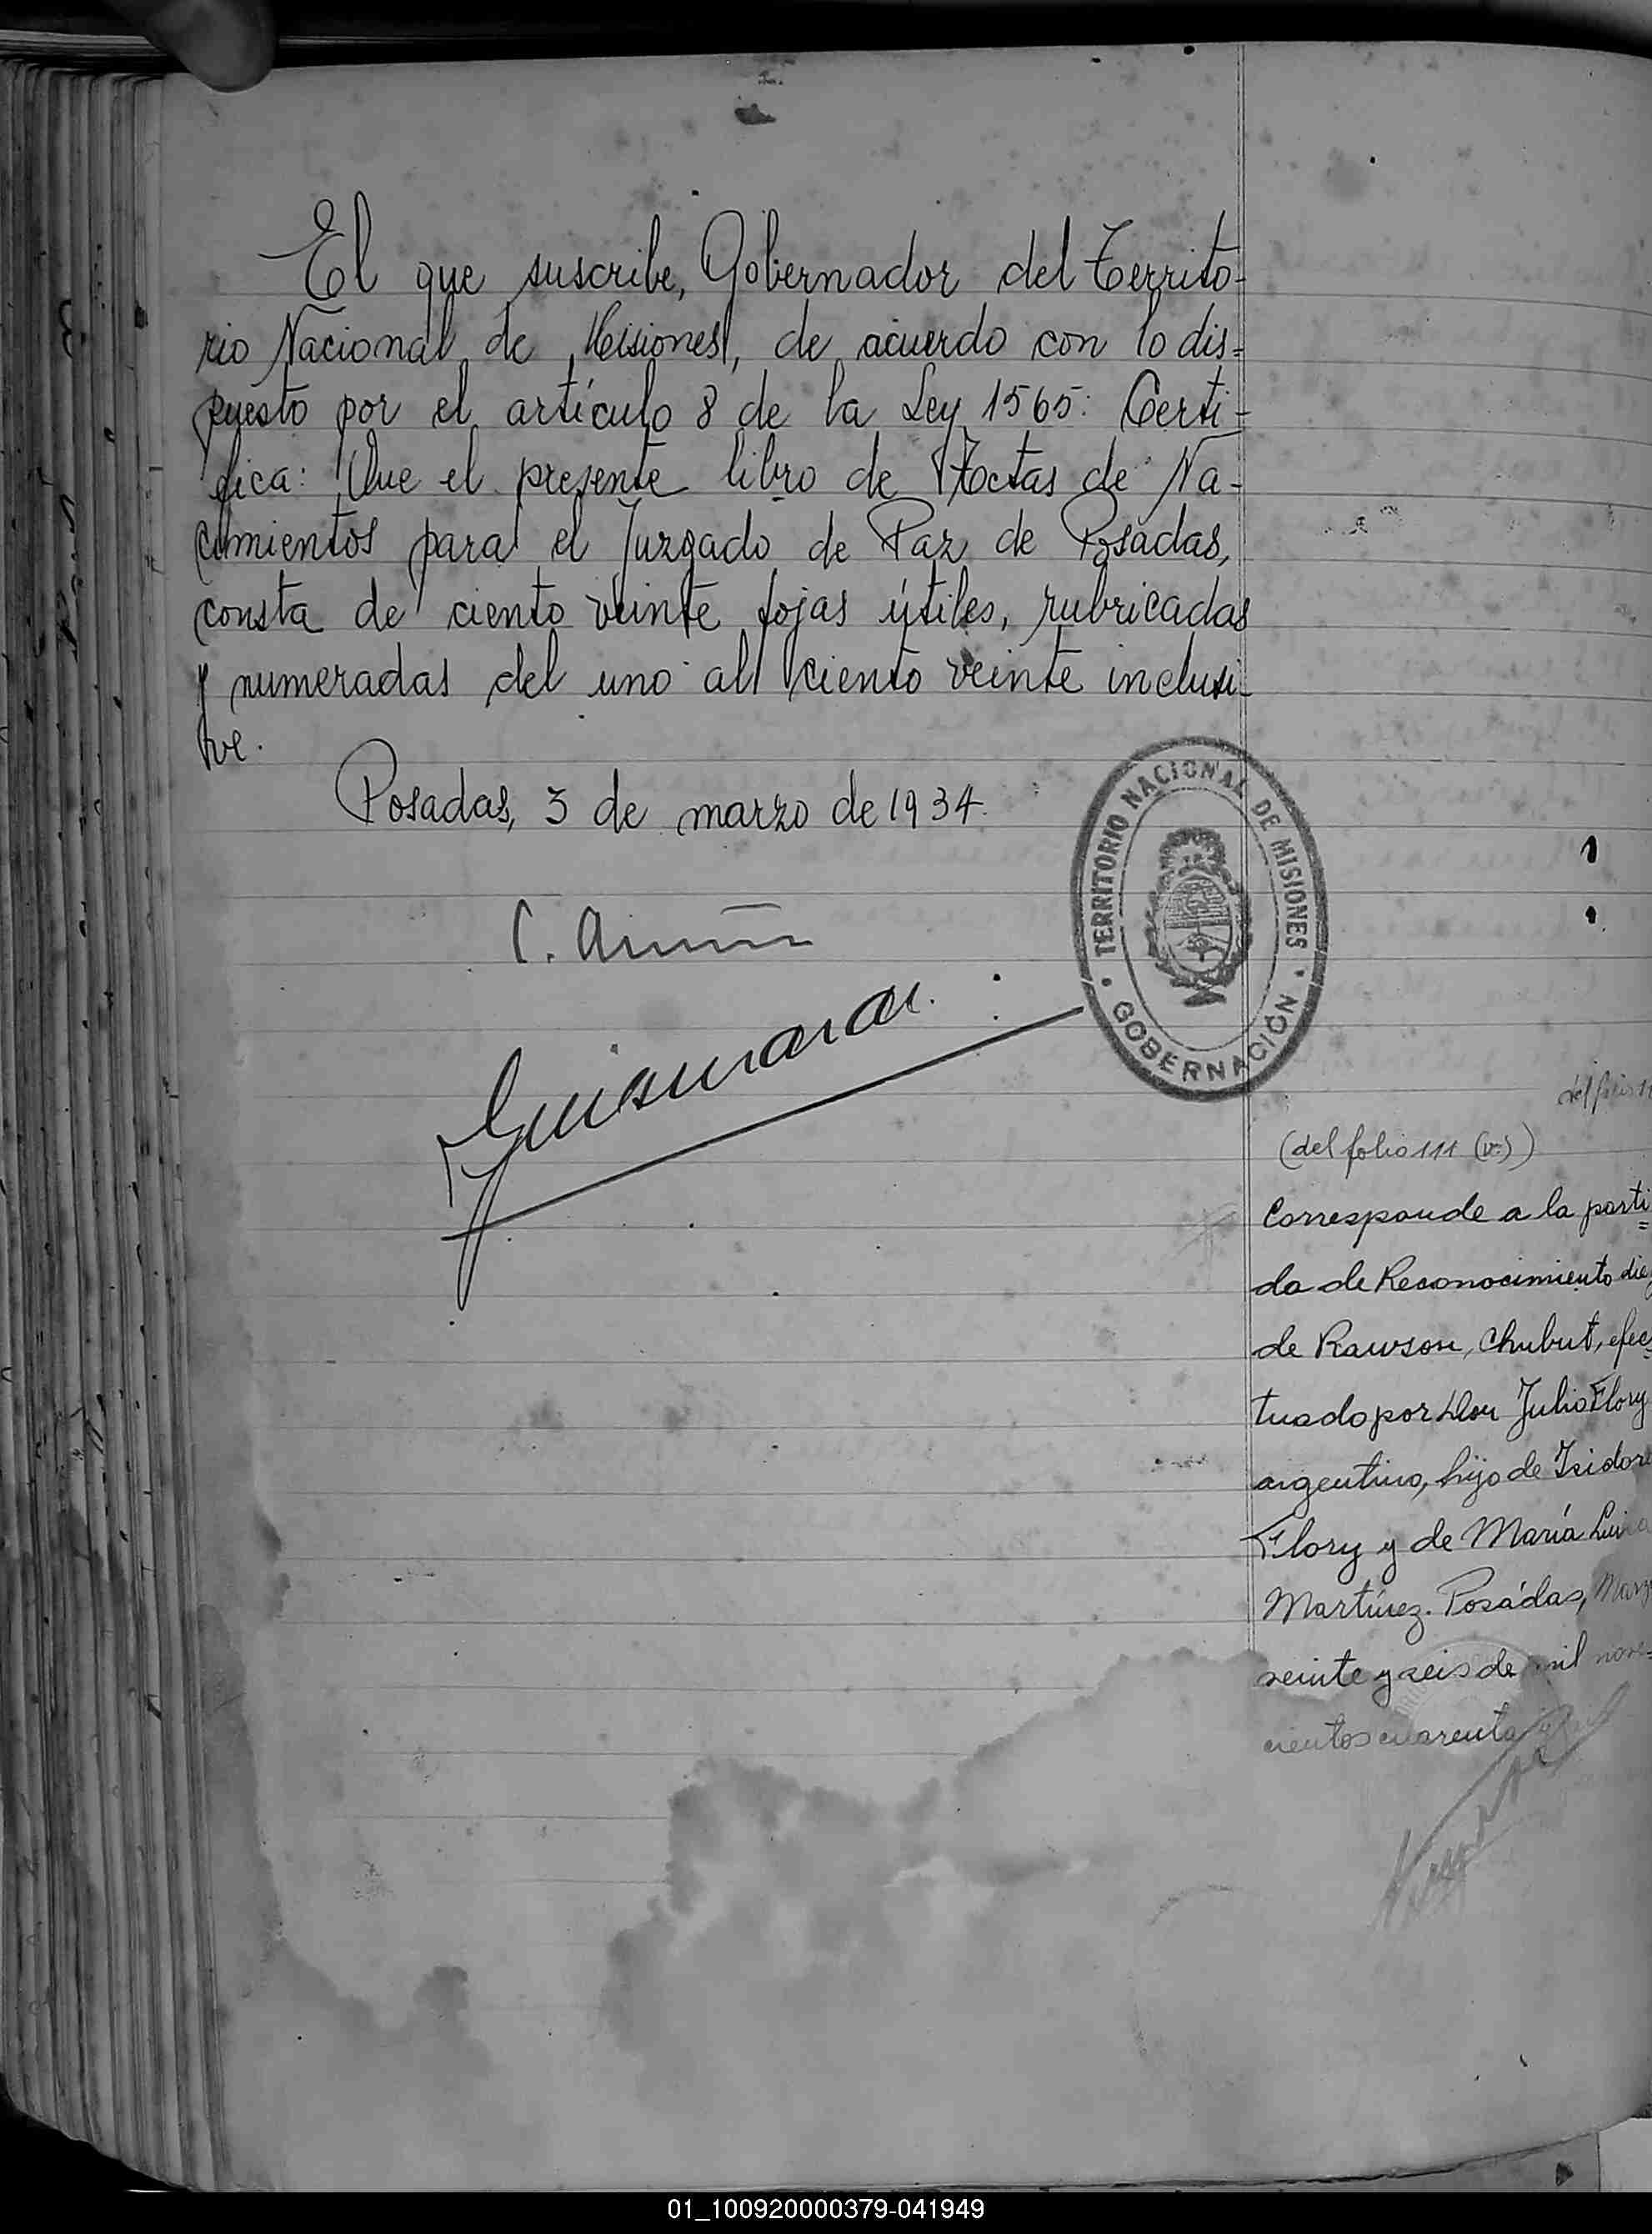 El que suscribe, Gobernador del Territo-
rio Nacional de Misiones, de acuerdo con lo dis=
puesto por el artículo 8 de la Ley 1565: Certi-
fica: Que el presente libro de Actas de Na-
cimientos para el Juzgado de Paz de Posadas,
consta de ciento veinte fojas útiles, rubricadas
y numeradas del uno al ciento veinte inclusi-
ve.
Posadas, 3 de marzo de 1934.
TERRITORIO NACIONAL DE MISIONES
GOBERNACIÓN
(del folio 111 (v))
Corresponde a la parti=
da de Reconocimiento diez
de Rawson, Chubut, efec=
tuado por Don Julio Flory
argentino, hijo de Isidoro
Flory y de María Luisa
Martínez. Posadas, Marzo
veinte y seis de mil nove=
cientos cuarenta y
01_100920000379-041949